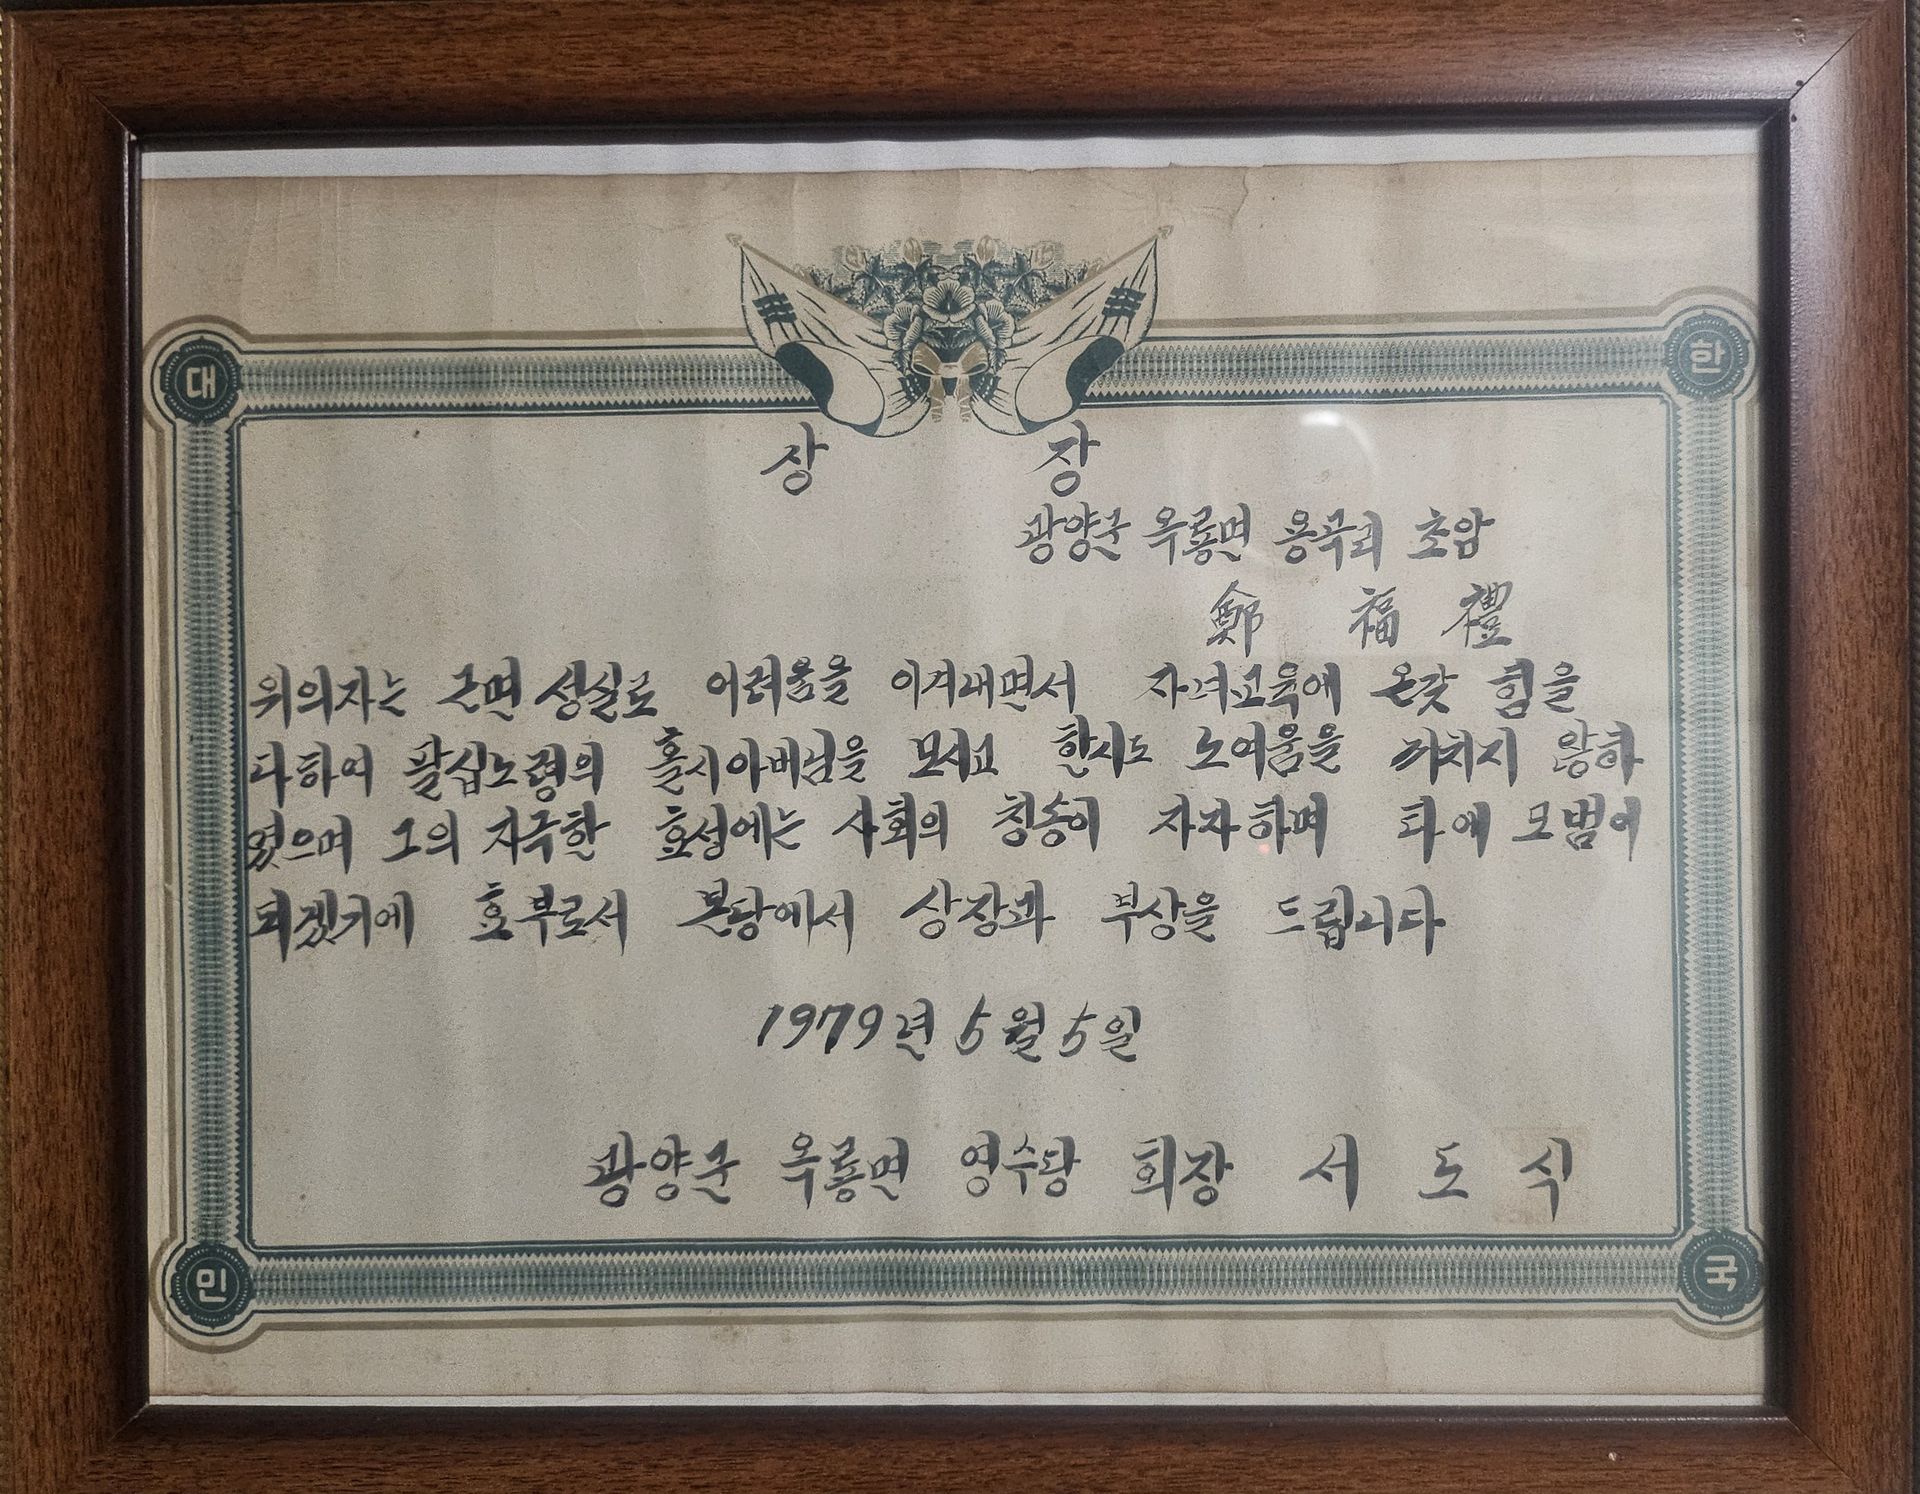 대 한
상 장
광양군 옥룡면 용곡리 초암
鄭 福 禮
위의자는 근면 성실로 어려움을 이겨내면서 자녀교육에 온갖 힘을
다하여 팔십노령의 홀시아버님을 모시고 한시도 노여움을 끼치지 않하
였으며 그의 지극한 효성에는 사회의 칭송이 자자하며 타에 모범이
되겠기에 효부로서 본당에서 상장과 부상을 드립니다
1979년 5월 5일
광양군 옥룡면 영수당 회장 서 도 식
민 국